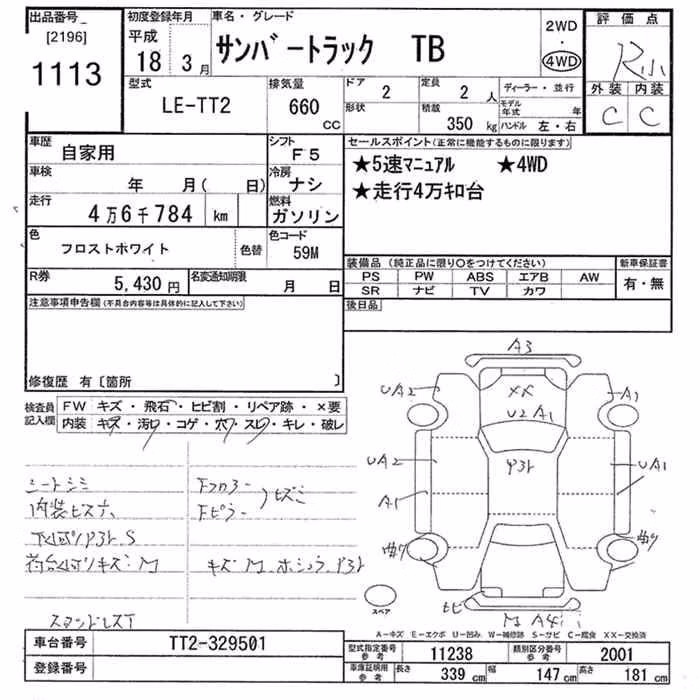 出品番号 [2196] 1113
初度登録年月 平成 18 3月
車名・グレード サンバートラック TB
2WD・4WD
評価点 R小
外装 内装
C C
型式 LE-TT2
排気量 660 CC
ドア 2
形状
定員 2人
積載 350 kg
ディーラー・並行
モデル年式 年
ハンドル 左・右
車歴 自家用
シフト F5
車検 年 月( 日)
冷房 ナシ
走行 4万6千784 km
燃料 ガソリン
色 フロストホワイト 色替
色コード 59M
R券 5,430円
名変通知期限 月 日
セールスポイント(正常に機能するものに限ります)
★5速マニュアル ★4WD
★走行4万キロ台
装備品(純正品に限り○をつけてください)
PS PW ABS エアB AW
SR ナビ TV カワ
新車保証書 有・無
後日品
注意事項申告欄(不具合内容等は具体的に記入して下さい)
修復歴 有〔箇所 〕
検査員記入欄
FW キズ・飛石・ヒビ割・リペア跡・×要
内装 キズ・汚れ・コゲ・穴・スレ・キレ・破レ
シートシミ
内装ビス穴
荷台 キズ M
Fフロアー
Fピラー
ヒズミ
キズ M
A3
UA2
A1
XX
U2 A1
UA2
UA1
A1
ヒビ
M A4
スペア
A-キズ E-エクボ U-凹み W-補修跡 S-サビ C-腐食 XX-交換済
車台番号 TT2-329501
登録番号
型式指定番号 参考 11238
類別区分番号 参考 2001
車庫証明用 参考 長さ 339 cm 幅 147 cm 高さ 181 cm